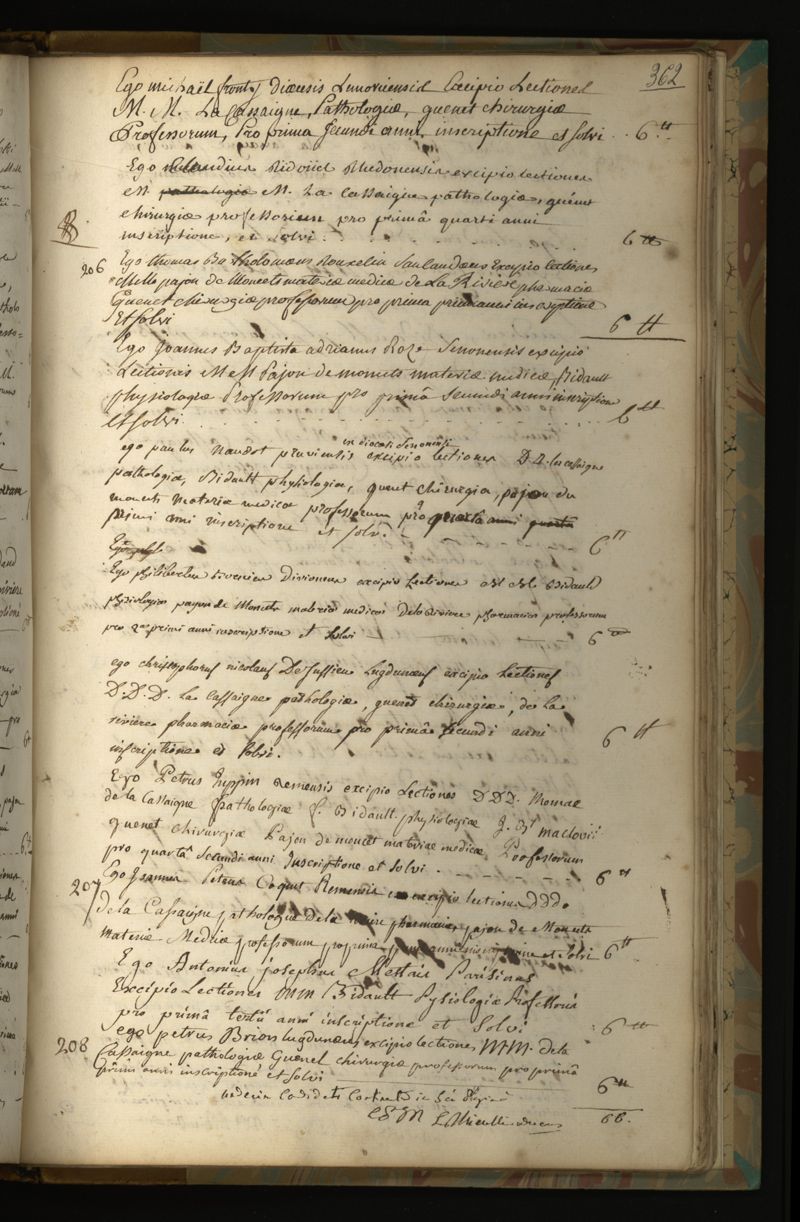 362
Ego michaël front Diœcesis Lemovicensis Excipio Lectiones
M. M. La Cassaigne, Pathologiæ, quenet chirurgiæ
Professorum, Pro prima secundi anni inscriptione et solvi .. 6 ₶
Ego Claudius Ridoüet Rhedonensis excipio lectiones
M. pathologiæ M. La Cassaigne pathologiæ, quenet
chirurgiæ professorum pro primâ quarti anni
inscriptione, et solvi . . . 6 ₶
206 Ego thomas Bartholomæus Rouxelin Sanlaudæus Excipio lectiones
pajon de Moncets materiæ medicæ de La Riviere pharmaciæ
Quenet chirurgiæ professorum pro prima primi anni inscriptione
Et solvi 6 ₶
Ego Joannes Baptista adrianus Roze Senonensis excipio
Lectiones Pajon de moncets materiæ medicæ, Bidault
physiologiæ Professorum pro primâ Secundi anni inscriptione
et solvi . . . 6 ₶
in diocesi Senonensi
ego paulus Naudot pruviensis excipio lectiones D.D. la cassaigne
pathologiæ, Bidault physiologiæ, quenet chirurgiæ, pajon de
moncets materiæ medicæ professorum pro quarta anni
primi anni inscriptione et solvi . . 6 ₶
Ego philibertus Divionensis excipio Lectiones Bidault
physiologiæ pajon de Moncets materiæ medicæ Delariviere pharmaciæ professorum
pro 2da primi anni inscriptione et solvi 6 ₶
ego christophorus nicolaus De Jussieu Lugdunæus excipio Lectiones
D.D.D. La Cassaigne pathologiæ, quenet chirurgiæ, de la
riviere pharmaciæ professorum pro primâ secundi anni
inscriptione et solvi. 6 ₶
Ego Petrus Remensis excipio Lectiones D.D.D. thomae
de la Cassaigne pathologiæ f. Bidault physiologiæ J. Bt maclovii
quenet chirurgiæ Pajon de moncet materiæ medicæ Professorum
pro quartâ Secundi anni Inscriptione et solvi . . . 6 ₶
207 Ego Joannes Petrus Coquet Remensis excipio lectiones DDD.
de la Cassaigne pathologiæ de la riviere pharmaciæ, pajon de Moncets
materiæ Medicæ professorum pro prima primi anni inscriptione et Solvi 6 ₶
Ego Antonius josephus Mettais Parisinus
Excipio Lectiones MM Bidault Pysiologiæ Professoris
pro primâ tertii anni inscriptione et Solvi 6 ₶
208 ego petrus Brion lugdunæus excipio lectiones MM. de la
Cassaigne pathologiæ Quenet chirurgiæ professorum pro primâ
primi anni inscriptione et solvi 6 ₶
66.